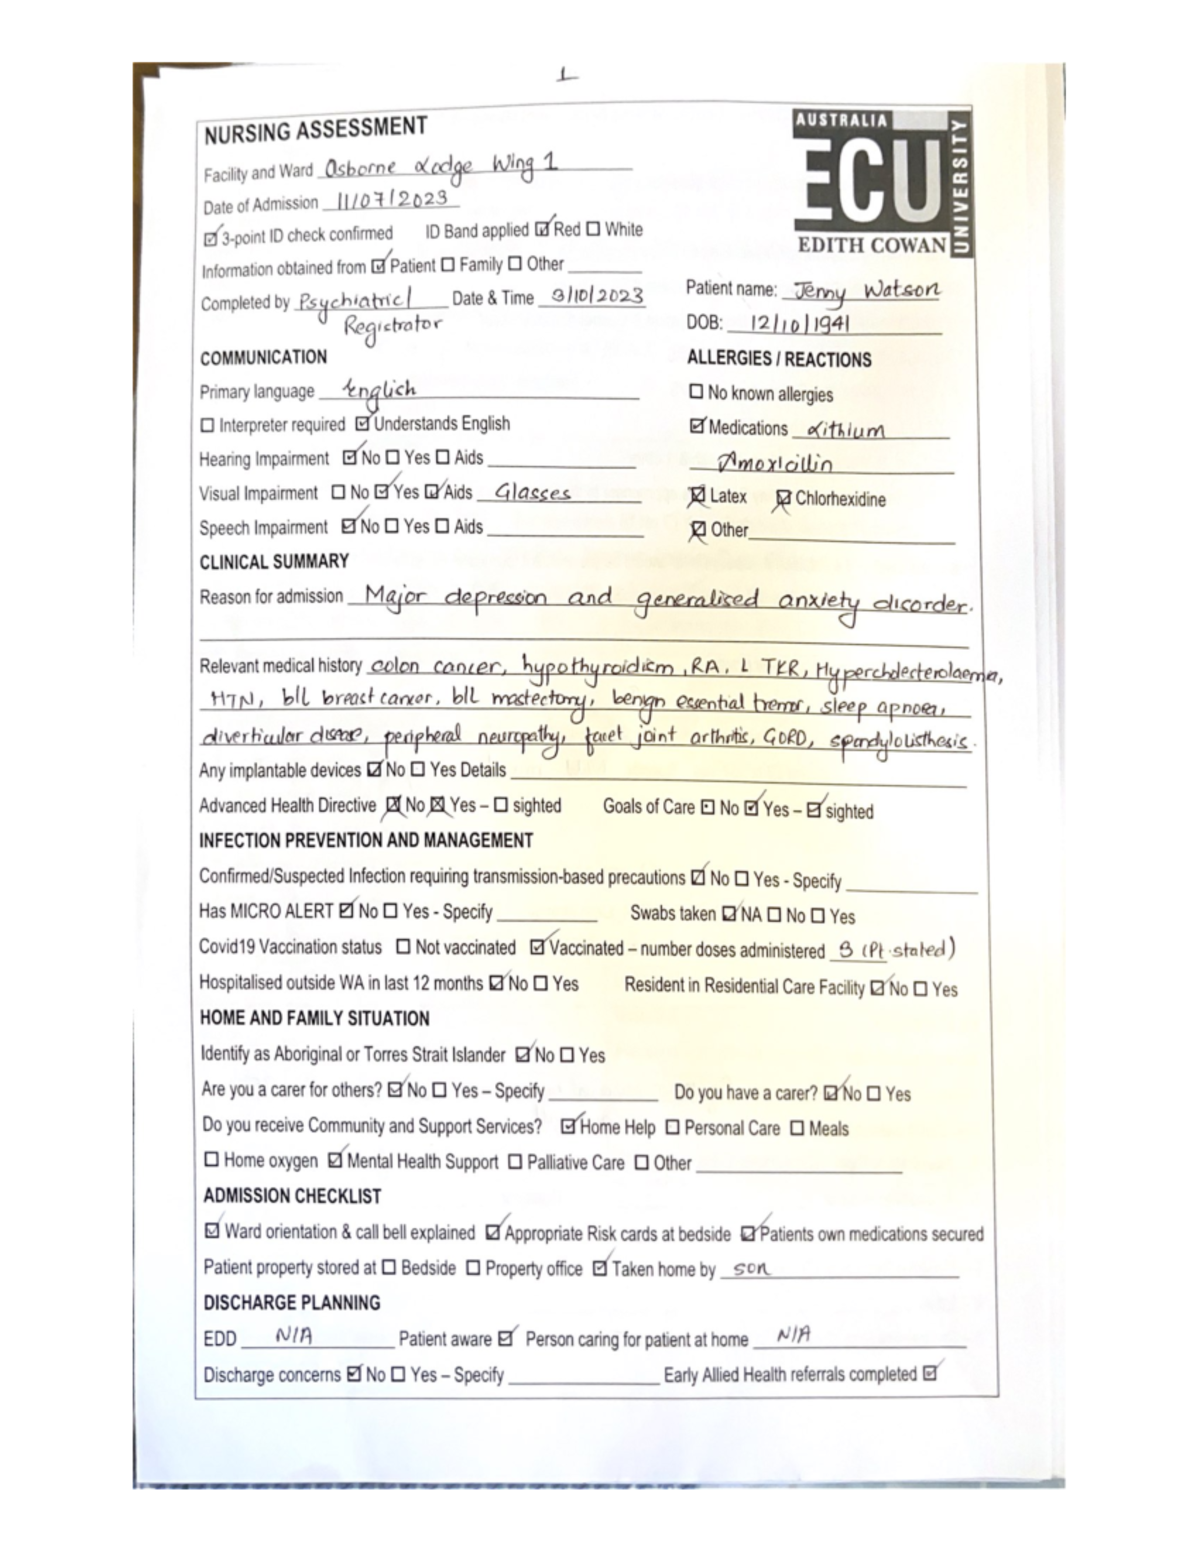 1
NURSING ASSESSMENT
AUSTRALIA
ECU
UNIVERSITY
EDITH COWAN
Facility and Ward Osborne Lodge Wing 1
Date of Admission 11/07/2023
☑ 3-point ID check confirmed ID Band applied ☑ Red ☐ White
Information obtained from ☑ Patient ☐ Family ☐ Other
Completed by Psychiatric/ Date & Time 3/10/2023
Registrator
Patient name: Jenny Watson
DOB: 12/10/1941
COMMUNICATION
Primary language English
☐ Interpreter required ☑ Understands English
Hearing Impairment ☑ No ☐ Yes ☐ Aids
Visual Impairment ☐ No ☑ Yes ☑ Aids Glasses
Speech Impairment ☑ No ☐ Yes ☐ Aids
ALLERGIES / REACTIONS
☐ No known allergies
☑ Medications Lithium
Amoxicillin
☒ Latex ☒ Chlorhexidine
☒ Other
CLINICAL SUMMARY
Reason for admission Major depression and generalised anxiety disorder.
Relevant medical history colon cancer, hypothyroidism, RA, L TKR, Hypercholesterolaemia,
HTN, bll breast cancer, bll mastectomy, benign essential tremor, sleep apnoea,
diverticular disease, peripheral neuropathy, facet joint arthritis, GORD, spondylolisthesis.
Any implantable devices ☑ No ☐ Yes Details
Advanced Health Directive ☒ No ☒ Yes – ☐ sighted Goals of Care ☐ No ☑ Yes – ☑ sighted
INFECTION PREVENTION AND MANAGEMENT
Confirmed/Suspected Infection requiring transmission-based precautions ☑ No ☐ Yes - Specify
Has MICRO ALERT ☑ No ☐ Yes - Specify Swabs taken ☑ NA ☐ No ☐ Yes
Covid19 Vaccination status ☐ Not vaccinated ☑ Vaccinated – number doses administered 3 (Pt stated)
Hospitalised outside WA in last 12 months ☑ No ☐ Yes Resident in Residential Care Facility ☑ No ☐ Yes
HOME AND FAMILY SITUATION
Identify as Aboriginal or Torres Strait Islander ☑ No ☐ Yes
Are you a carer for others? ☑ No ☐ Yes – Specify Do you have a carer? ☑ No ☐ Yes
Do you receive Community and Support Services? ☑ Home Help ☐ Personal Care ☐ Meals
☐ Home oxygen ☑ Mental Health Support ☐ Palliative Care ☐ Other
ADMISSION CHECKLIST
☑ Ward orientation & call bell explained ☑ Appropriate Risk cards at bedside ☑ Patients own medications secured
Patient property stored at ☐ Bedside ☐ Property office ☑ Taken home by son
DISCHARGE PLANNING
EDD N/A Patient aware ☑ Person caring for patient at home N/A
Discharge concerns ☑ No ☐ Yes – Specify Early Allied Health referrals completed ☑